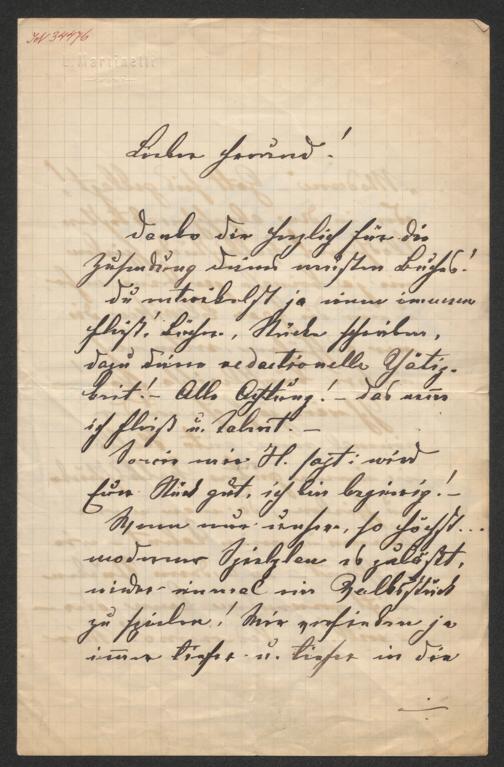 IN 34476
L. Martinelli
Lieber Freund!
Danke dir herzlich für die
Zusendung deines neuesten Buches!
Du entwickelst ja einen immensen
Fleiß! Bücher, Stücke schreiben,
dazu deine redactionelle Thätig-
keit! – Alle Achtung! – das nenn
ich Fleiß u. Talent. –
Sowie mir H. sagt: wird
Euer Stück gut, ich bin begierig! –
Wenn nur unser, so höchst...
moderner Spielplan es zuläßt,
wieder einmal ein Volksstück
zu spielen! Wir versinken ja
immer tiefer u. tiefer in die